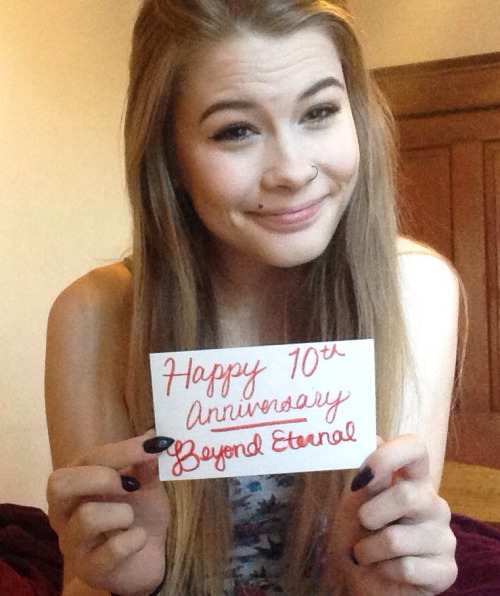 Happy 10th
anniversary
Beyond Eternal